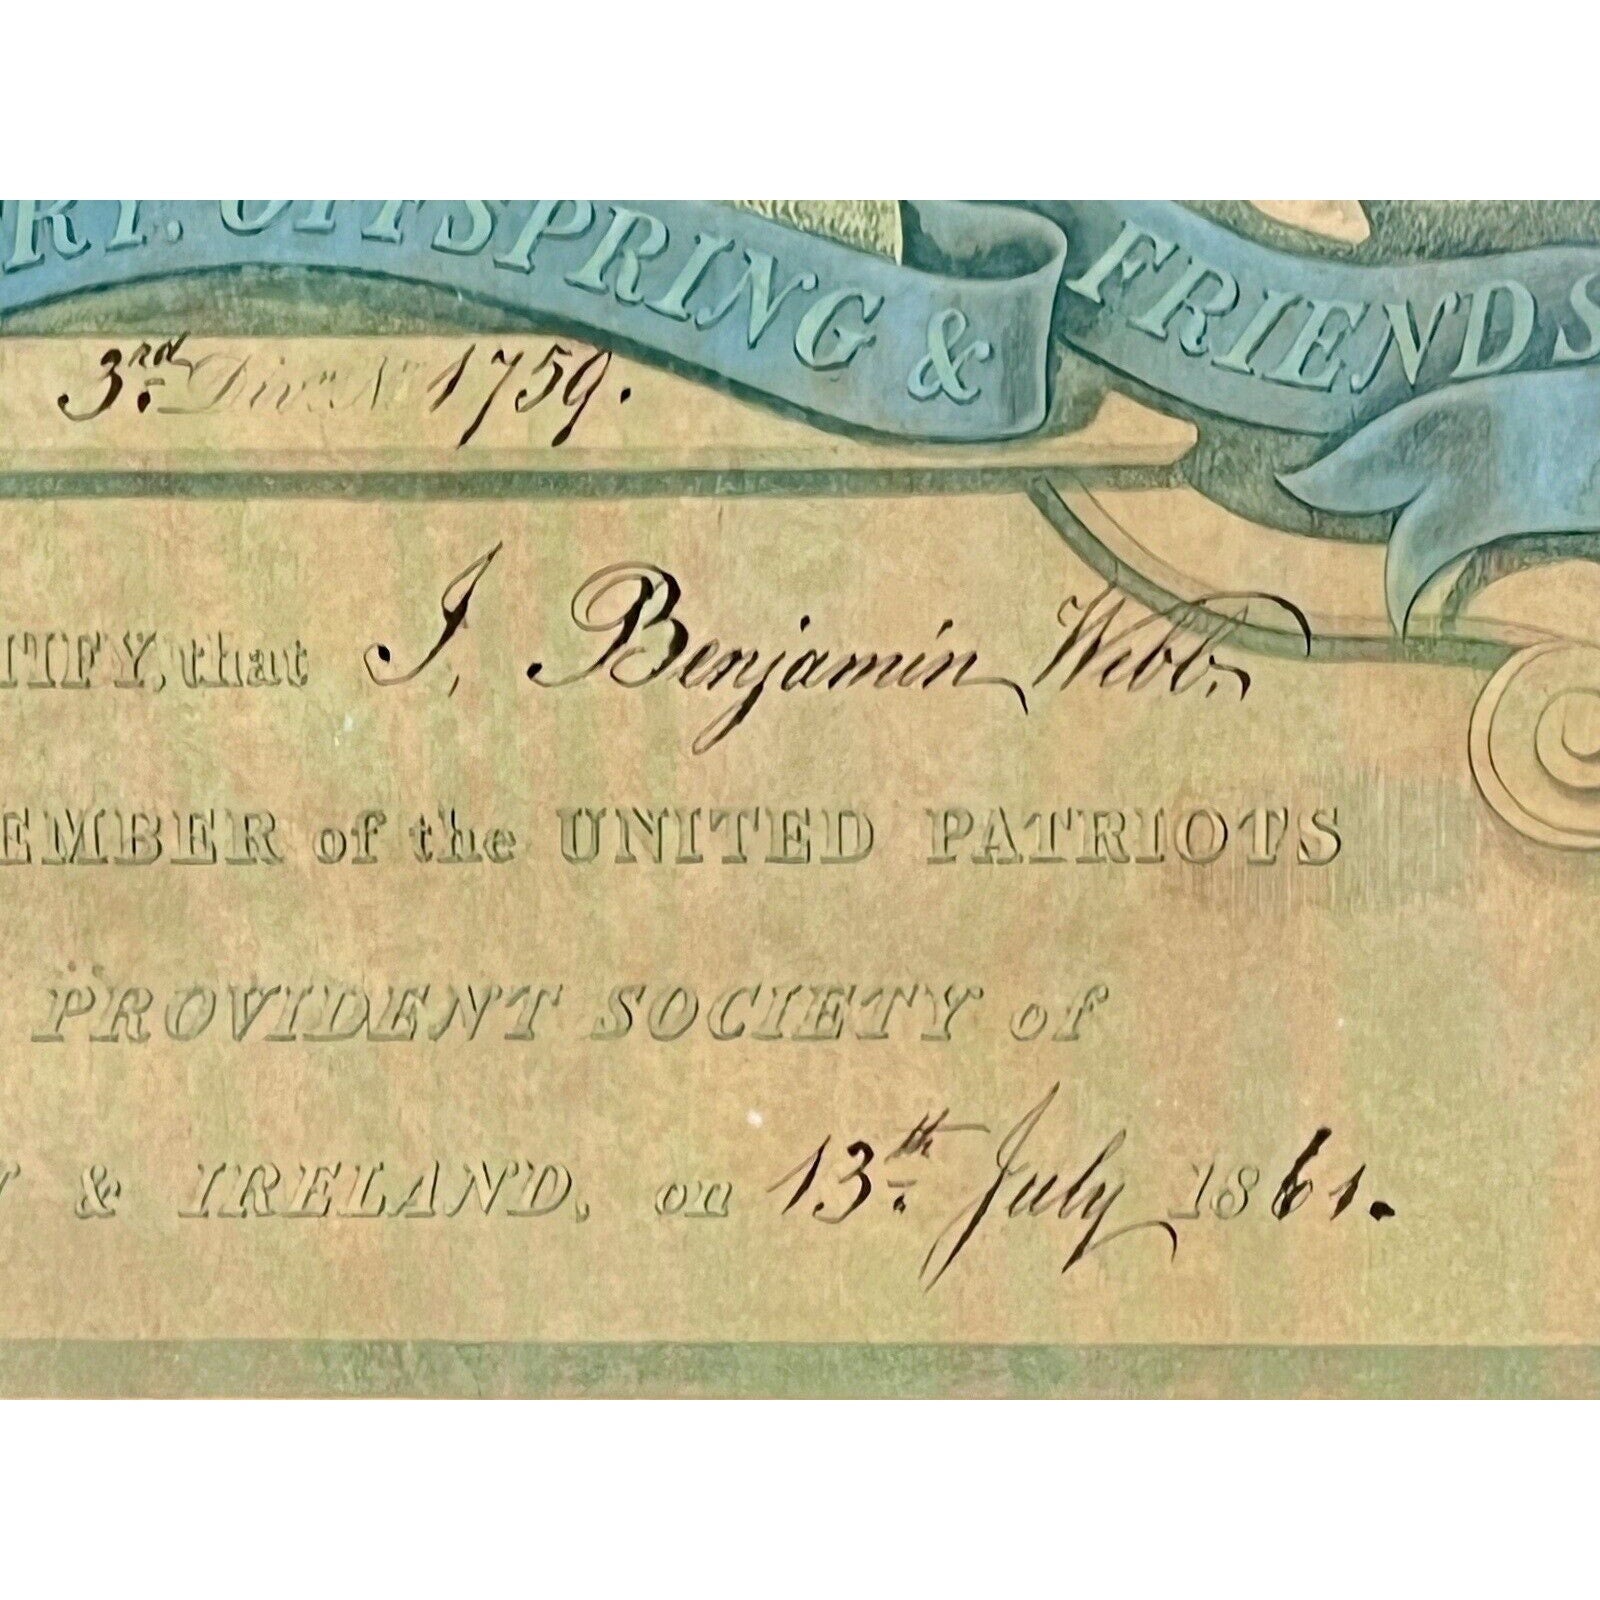 RY. OFFSPRING & FRIENDS
3rd. Divn. No. 1759.
TIFY, that I, Benjamin Webb,
EMBER of the UNITED PATRIOTS
PROVIDENT SOCIETY of
& IRELAND, on 13th. July 1861.